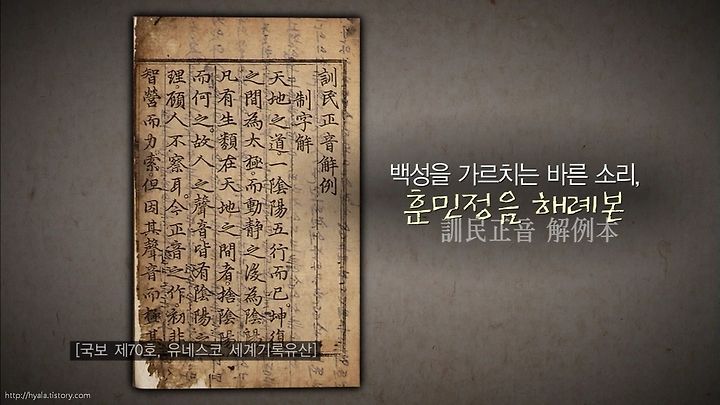 訓民正音解例
制字解
天地之道一陰陽五行而已。坤復
之間為太極。而動静之後為陰
凡有生類在天地之間者。捨陰陽
而何之。故人之聲音皆有陰陽之
理。顧人不察耳。今正音之作。初非
智營而力索。但因其聲音而極其
백성을 가르치는 바른 소리,
훈민정음 해례본
訓民正音 解例本
[국보 제70호, 유네스코 세계기록유산]
http://hyala.tistory.com